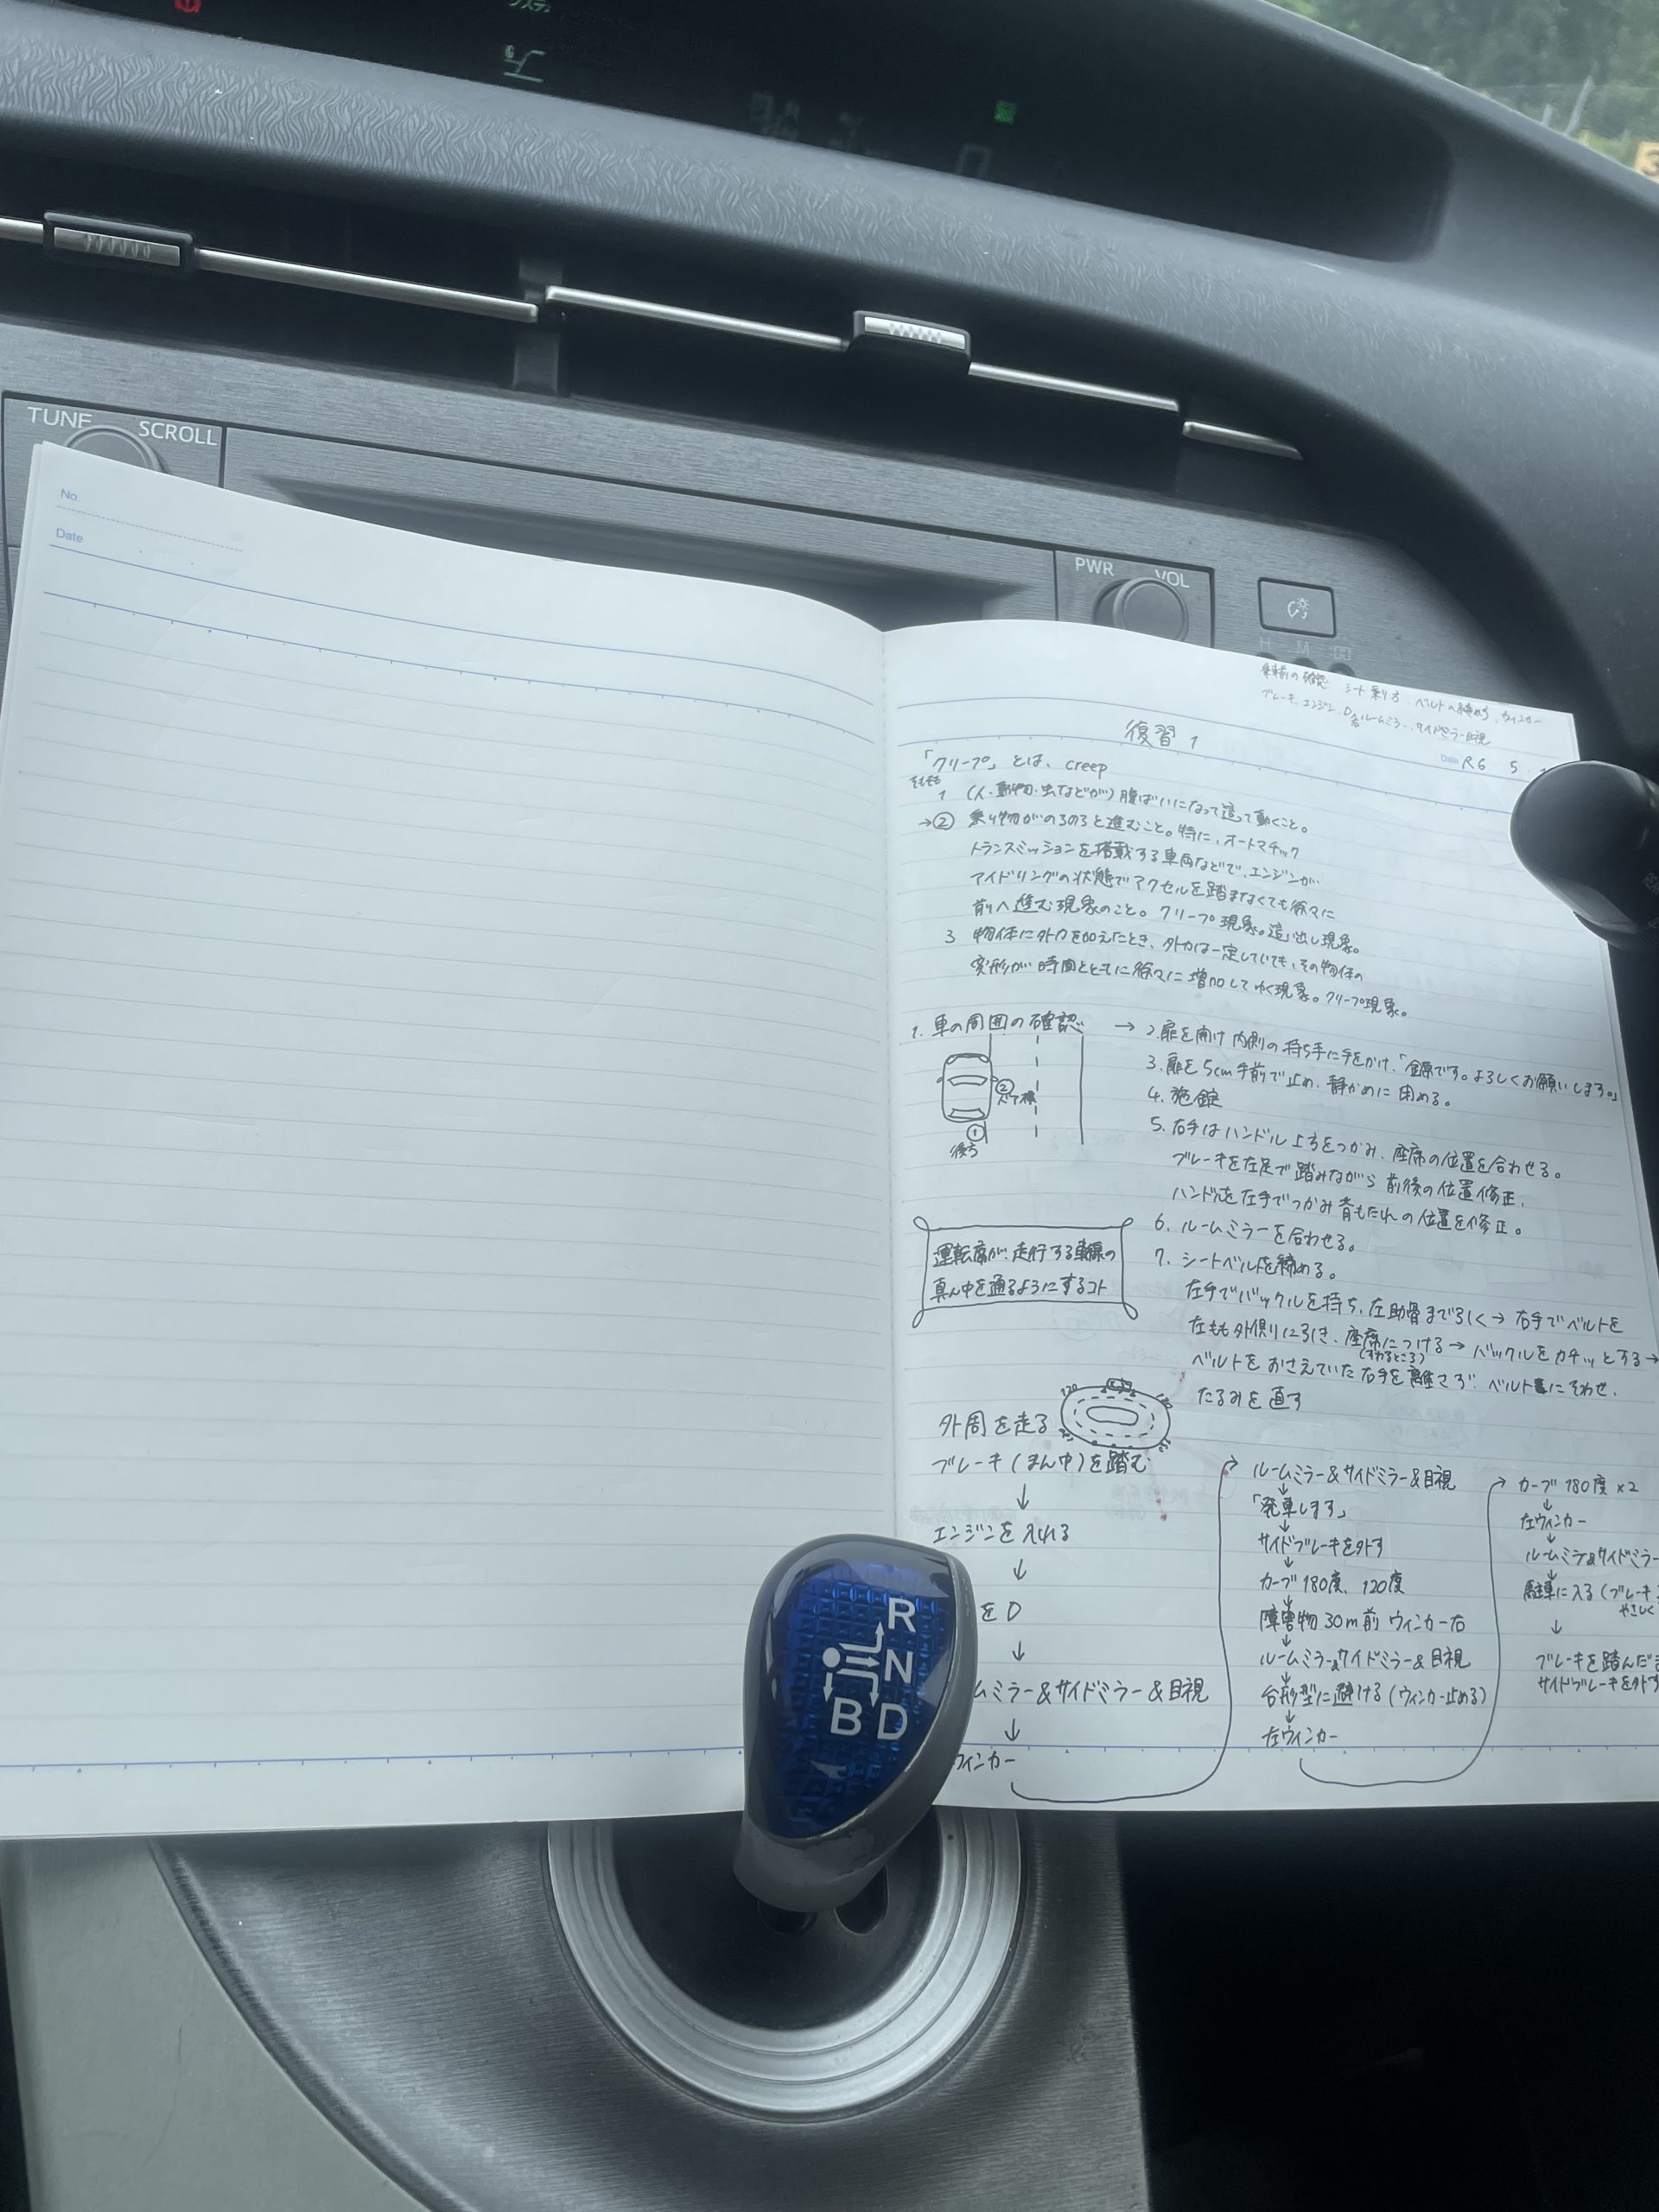 TUNE
SCROLL
PWR VOL
H M :00
No.
Date
乗車前の確認 シート乗り方、ベルトの締め方、ウィンカー
ブレーキ、エンジン、D、ルームミラー、サイドミラー目視
復習 1
Date R6 5
「クリープ」とは、creep
そもそも
1 (人・動物・虫などが)腹ばいになって這って動くこと。
→② 乗り物がのろのろと進むこと。特に、オートマチック
トランスミッションを搭載する車両などで、エンジンが
アイドリングの状態でアクセルを踏まなくても徐々に
前へ進む現象のこと。クリープ現象。這い出し現象。
3 物体に外力を加えたとき、外力は一定していても、その物体の
変形が時間とともに徐々に増加してゆく現象。クリープ現象。
1. 車の周囲の確認
②
①
後方
→ 2.扉を開け内側の持ち手に手をかけ、「です。よろしくお願いします。」
3. 扉を5cm手前で止め、静かめに閉める。
4. 施錠
5. 右手はハンドル上方をつかみ、座席の位置を合わせる。
ブレーキを左足で踏みながら前後の位置修正、
ハンドルを左手でつかみ背もたれの位置を修正。
6. ルームミラーを合わせる。
7. シートベルトを締める。
左手でバックルを持ち、左助骨まで引く→右手でベルトを
左もも外側に引き、座席につける→バックルをカチッとする→
(すわるところ)
ベルトをおさえていた右手を離さず、ベルトにそわせ、
たるみを直す
運転席が、走行する車線の
真ん中を通るようにするコト
外周を走る
120
ブレーキ(まん中)を踏む
↓
エンジンを入れる
↓
をD
↓
ムミラー&サイドミラー&目視
↓
ウィンカー
ルームミラー&サイドミラー&目視
↓
「発車します」
↓
サイドブレーキを外す
↓
カーブ180度、120度
↓
障害物30m前 ウィンカー右
↓
ルームミラー&サイドミラー&目視
↓
台形型に避ける(ウィンカー止める)
↓
左ウィンカー
カーブ180度×2
↓
左ウィンカー
↓
ルームミラ&サイドミラー
↓
駐車に入る(ブレーキ
やさしく
↓
ブレーキを踏んだ
サイドブレーキを外す
R
N
B D